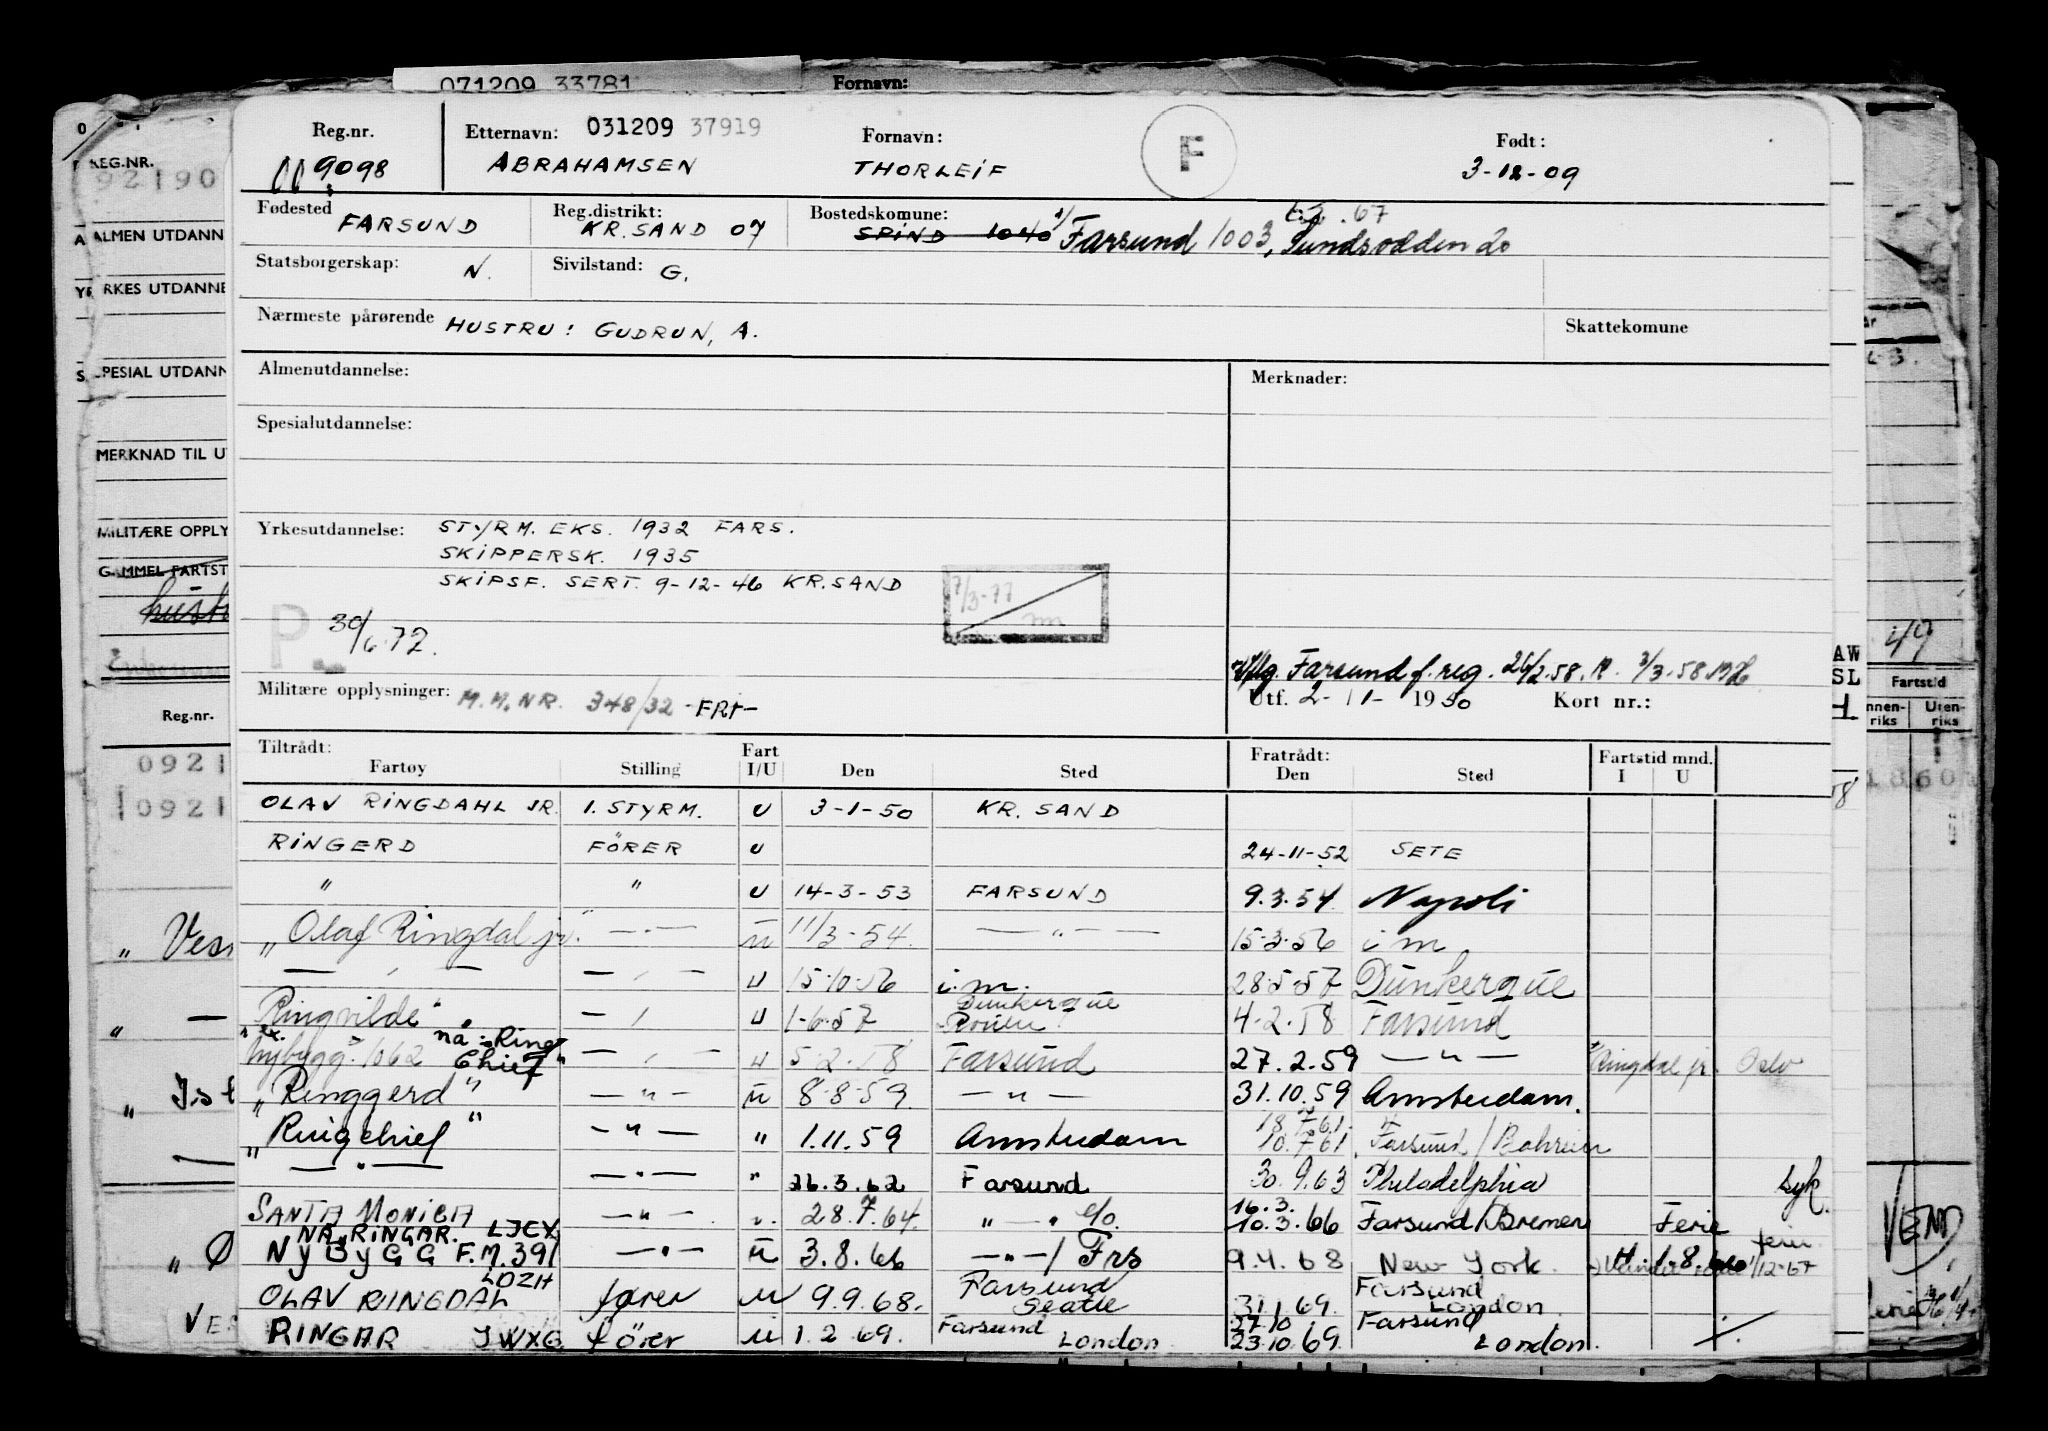 071209 33781 Fornavn:
Reg.nr. Etternavn: 031209 37919 Fornavn: F Født:
9098 ABRAHAMSEN THORLEIF 3-12-09
Fødested Reg.distrikt: Bostedskomune: .67
FARSUND KR.SAND 07 SPIND 1040 Farsund 1003, Sundsodden 20
Statsborgerskap: N. Sivilstand: G.
Nærmeste pårørende HUSTRU: GUDRUN, A. Skattekomune
Almenutdannelse: Merknader:
Spesialutdannelse:
Yrkesutdannelse: STYRM. EKS. 1932 FARS.
SKIPPERSK. 1935
SKIPSF. SERT. 9-12-46 KR.SAND
7/3-77
P 30/6.72.
Farsund f. reg. 26/2.58. 3/3.58
Militære opplysninger: M.M.NR. 348/32 -FRI- Utf. 2-11-1950 Kort nr.:
Tiltrådt: Fart Fratrådt: Fartstid mnd.
Fartøy Stilling I/U Den Sted Den Sted I U
OLAV RINGDAHL JR. 1. STYRM. U 3-1-50 KR. SAND
RINGERD FÖRER U 24-11-52 SETE
" " U 14-3-53 FARSUND 9.3.54 Napoli
"Olaf Ringdal jr." — " — u 11/3-54 — " — 15-3-56 i.m.
— " — — " — u 15-10-56 i.m. 28-5-57 Dunkerque
Ringvilde" — " — u 1-6-57 Dunkerque Rouen 4-2-58 Farsund
"ex. nybygg. 1062 nå: Ring Chief" — " — u 5-2-58 Farsund 27.2.59 — " — Ringdal jr. Oslo
"Ringgerd" — " — u 8-8-59 — " — 31.10.59 Amsterdam.
"Ringchief" — " — " 1.11.59 Amsterdam 18.7.61 10.7.61 Farsund / Bahrein
— " — — " — " 26.3.62 Farsund 30.9.63 Philadelphia syk.
SANTA MONICA — " — 28.7.64 " — " 16.3. 10.3.66 Farsund / Bremen Ferie
NÅ RINGAR. LJCX
NYBYGG F.M. 391 — " — u 3.8.66 — " — / Frs 9.4.68 New York. ferie 1/12-67
LDZH
OLAV RINGDAL fører u 9.9.68. Farsund Seatle 31.1.69. Farsund London.
RINGAR JWXG förer u 1.2.69. Farsund London 27.10 23.10.69. Farsund London.
REG.NR.
92190
ALMEN UTDANN
YRKES UTDANNE
SPESIAL UTDANN
MERKNAD TIL U
MILITÆRE OPPLY
GAMMEL FARTST
Reg.nr.
0921
0921
" Vesn
" —
" Ø
VES
AW
SL
49
Fartstid
Innen-riks Uten-riks
1860
VEND